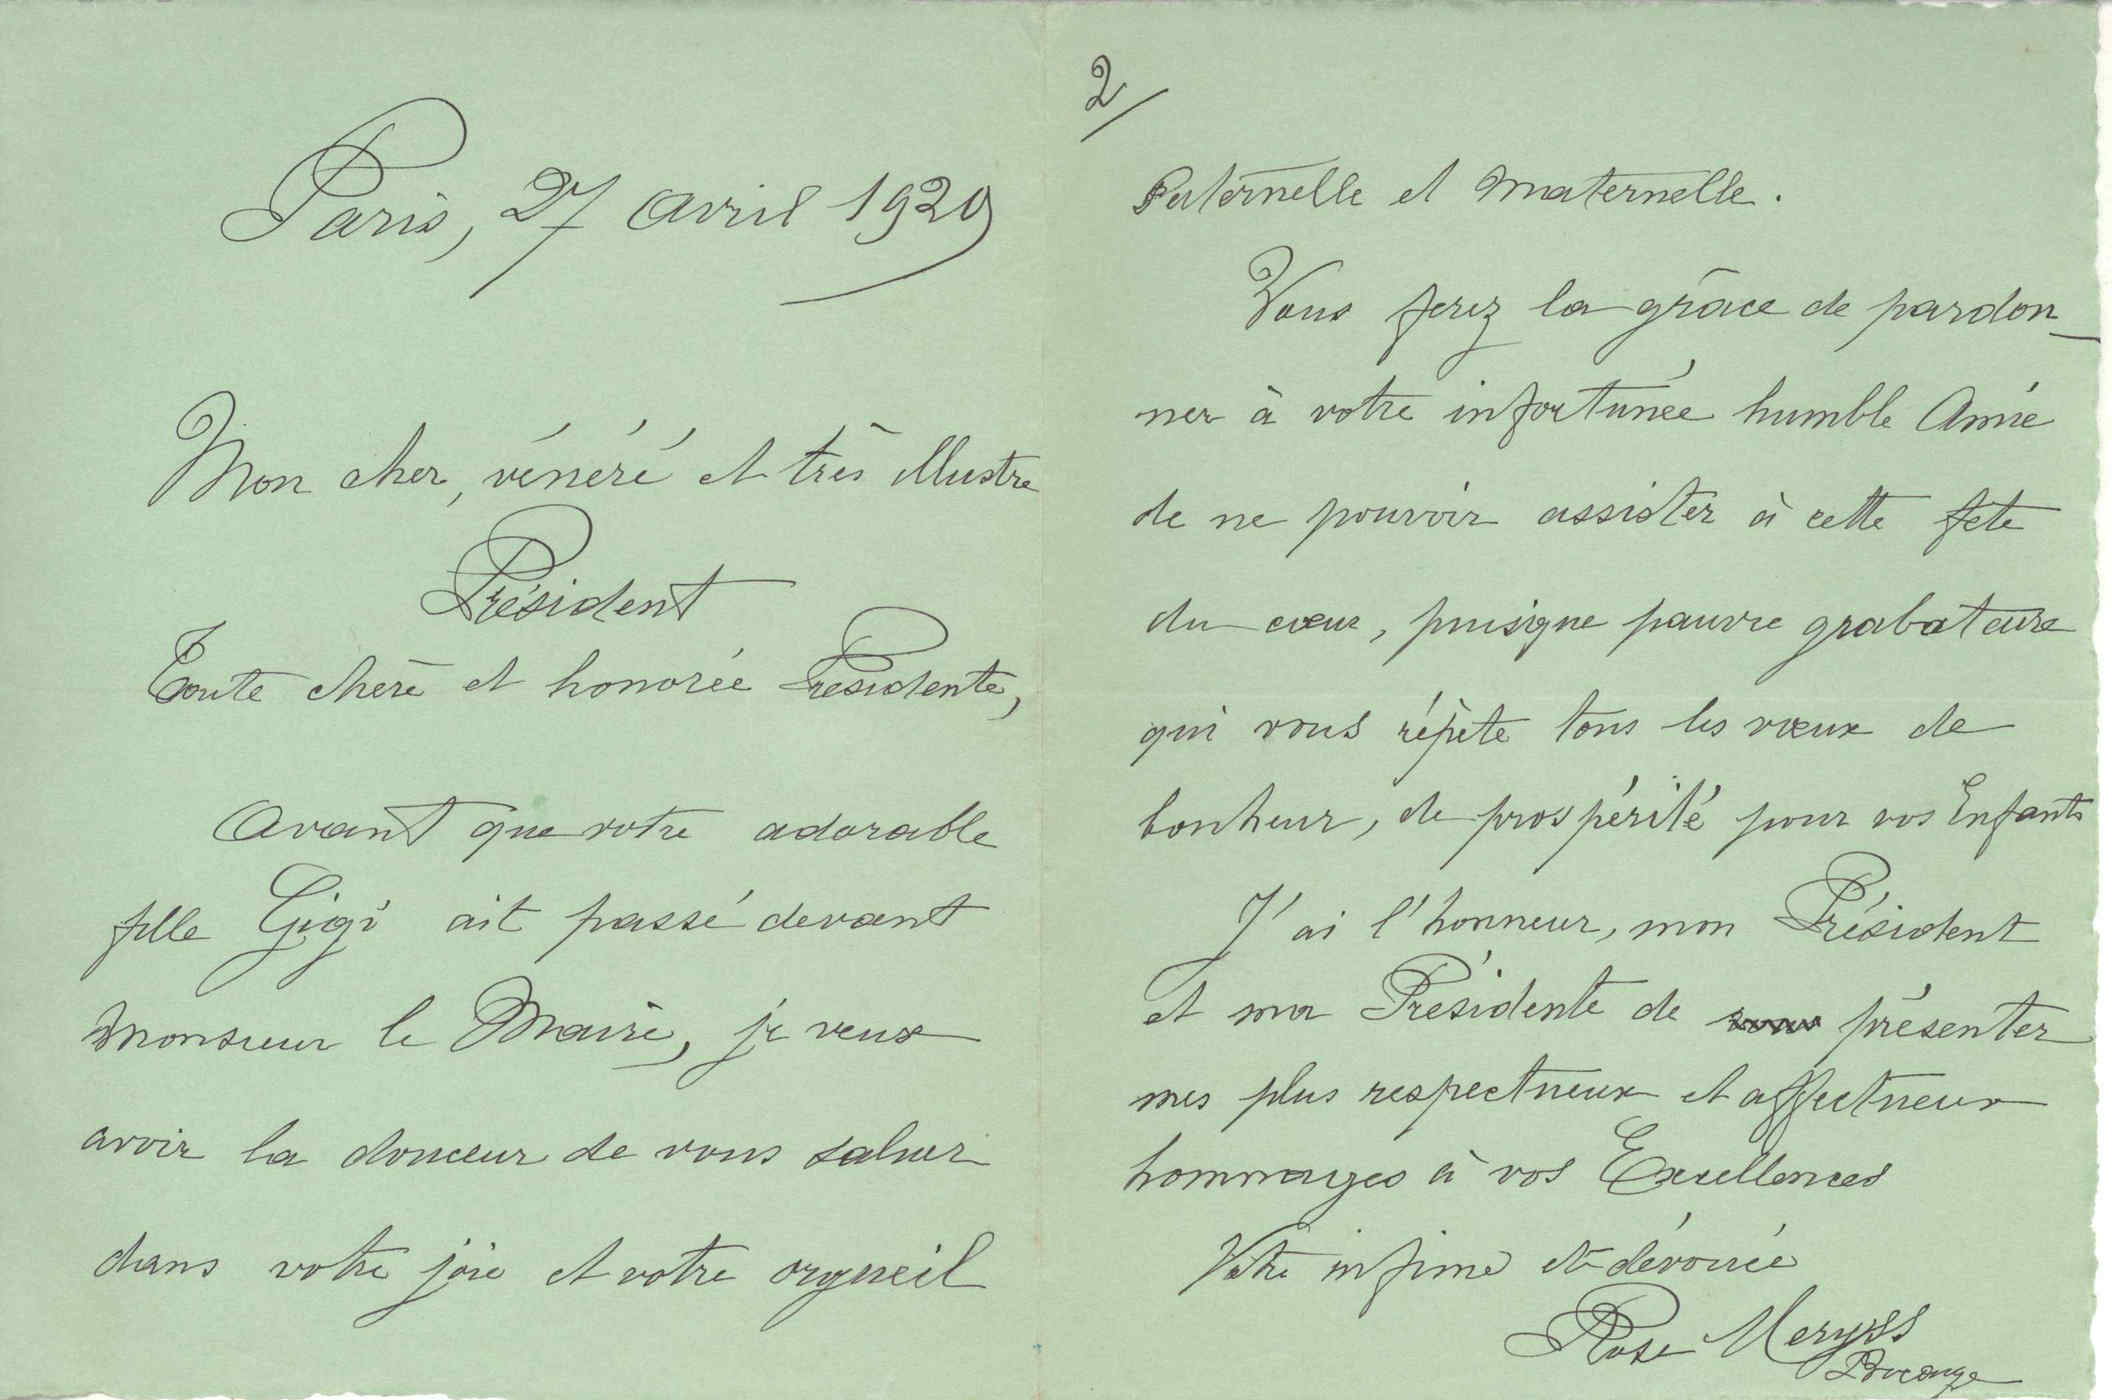 Paris, 27 avril 1929
Mon cher, vénéré et très illustre
Président
Toute chère et honorée Présidente,
Avant que votre adorable
fille Gigi ait passé devant
Monsieur le Maire, je veux
avoir la douceur de vous saluer
dans votre joie et votre orgueil
2/
Paternelle et Maternelle.
Vous ferez la grâce de pardon-
ner à votre infortunée humble Amie
de ne pouvoir assister à cette fete
du cœur, puisque pauvre grabataire
qui vous répète tous les vœux de
bonheur, de prospérité pour vos Enfants
J'ai l'honneur, mon Président
et ma Présidente de présenter
mes plus respectueux et affectueux
hommages à vos Excellences
Votre infime et dévouée
Rose Meryss